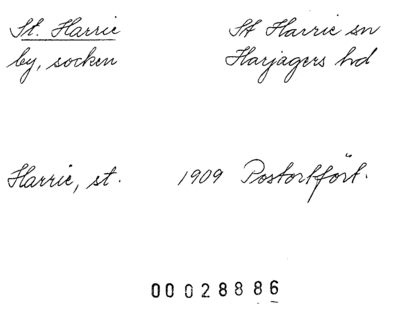 St. Harrie St Harrie sn
by, socken Harjagers hd
Harrie, st. 1909 Postortfört.
00028886